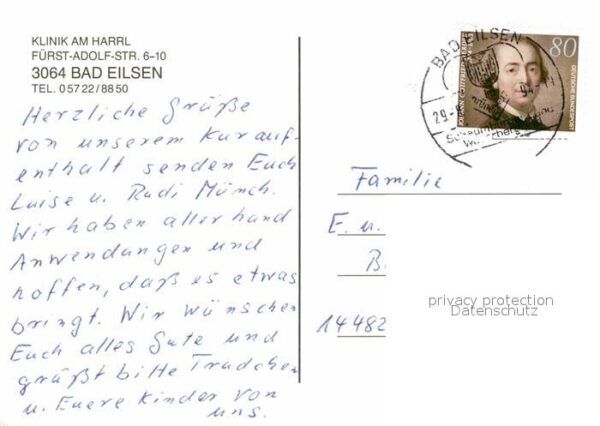 KLINIK AM HARRL
FÜRST-ADOLF-STR. 6–10
3064 BAD EILSEN
TEL. 05722/8850
Herzliche Grüße
von unserem Kurauf-
enthalt senden Euch
Luise u. Rudi Münch.
Wir haben aller hand
Anwendungen und
hoffen, daß es etwas
bringt. Wir wünschen
Euch alles Gute und
grüßt bitte Traudchen
u. Euere Kinder von
uns.
BAD EILSEN
80
DEUTSCHE BUNDESPOST
Familie
E. u.
B.
14482
privacy protection
Datenschutz